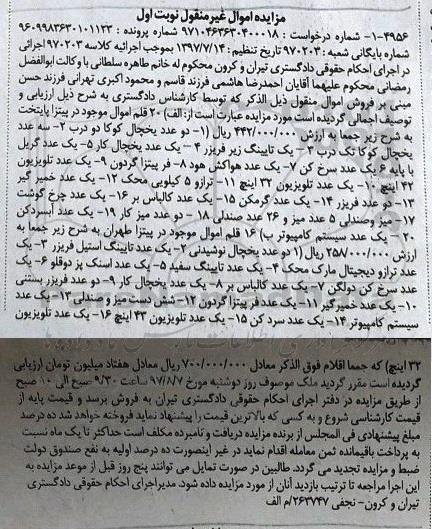 مزایده اموال غیرمنقول نوبت اول
۱-۴۹۵۶- شماره درخواست : ۹۷۱۰۴۶۳۶۳۰۴۰۰۰۱۸ شماره پرونده : ۹۶۰۹۹۸۳۶۳۰۱۰۱۲۳۳
شماره بایگانی شعبه: ۹۷۰۲۰۳ تاریخ تنظیم: ۱۳۹۷/۷/۱۴ بموجب اجرائیه کلاسه ۹۷۰۲۰۳ اجرائی
در اجرای احکام حقوقی دادگستری تیران و کرون محکوم له خانم طاهره سلطانی با وکالت ابوالفضل
رمضانی محکوم علیهما آقایان احمدرضا هاشمی فرزند قاسم و محمود اکبری تهرانی فرزند حسن
مبنی بر فروش اموال منقول ذیل الذکر که توسط کارشناس دادگستری به شرح ذیل ارزیابی و
توصیف اجمالی گردیده است مورد مزایده عبارت است از: الف) ۲۰ قلم اموال موجود در پیتزا پایتخت
به شرح زیر جمعا به ارزش ۴۴۲/۰۰۰/۰۰۰ ریال (۱- دو عدد یخچال کوکا دو درب ۲- سه عدد
یخچال کوکا تک درب ۳- یک تاپینگ زیر فریزر ۴- یک عدد یخچال کار ۵- یک عدد گریل
با پایه ۶ یک عدد سرخ کن ۷- یک عدد هواکش هود ۸- فر پیتزا گردون ۹- یک عدد تلویزیون
۴۲ اینچ ۱۰- یک عدد تلویزیون ۳۲ اینچ ۱۱- ترازو ۵ کیلویی محک ۱۲- یک عدد خمیر گیر
۱۳- دو عدد فریزر ۱۴- یک عدد گرمکن ۱۵- یک عدد کالباس بر ۱۶- یک عدد چرخ گوشت
۱۷- میز وصندلی ۵ عدد میز و ۲۶ عدد صندلی ۱۸- دو عدد میز کار ۱۹- یک عدد آبسردکن
۲۰- یک عدد سیستم کامپیوتر ب) ۱۶ قلم اموال موجود در پیتزا طهران به شرح زیر جمعا به
ارزش ۲۵۸/۰۰۰/۰۰۰ ریال (۱- دو عدد یخچال نوشیدنی ۲- یک عدد تاپینگ استیل فریزر ۳- یک
عدد ترازو دیجیتال مارک محک ۴- یک عدد تاپینگ سفید ۵- یک عدد اسنک پز دوقلو ۶- یک
عدد سرخ کن دولگن ۷- یک عدد کالباس بر ۸- یک عدد یخچال کار ۹- دو عدد فریزر بستنی
۱۰- یک عدد خمیرگیر ۱۱- یک عدد فر پیتزا گردون ۱۲- شش دست میز و صندلی ۱۳- یک عدد
سیستم کامپیوتر ۱۴- یک عدد سرد کن ۱۵- یک عدد تلویزیون ۴۳ اینچ ۱۶- یک عدد تلویزیون
۳۲ اینچ) که جمعا اقلام فوق الذکر معادل ۷۰۰/۰۰۰/۰۰۰ ریال معادل هفتاد میلیون تومان ارزیابی
گردیده است مقرر گردید ملک موصوف روز دوشنبه مورخ ۹۷/۸/۷ ساعت ۹/۳۰ صبح الی ۱۰ صبح
از طریق مزایده در دفتر اجرای احکام حقوقی دادگستری تیران به فروش برسد و قیمت پایه از
قیمت کارشناسی شروع و به کسی که بالاترین قیمت را پیشنهاد نماید فروخته خواهد شد ده درصد
مبلغ پیشنهادی فی المجلس از برنده مزایده دریافت و نامبرده مکلف است حداکثر تا یک ماه نسبت
به پرداخت باقیمانده ثمن معامله اقدام نماید در غیر اینصورت ده درصد اولیه به نفع صندوق دولت
ضبط و مزایده تجدید می گردد. طالبین در صورت تمایل می توانند پنج روز قبل از موعد مزایده به
این اجرا مراجعه تا ترتیب بازدید آنان از مورد مزایده داده شود. مدیراجرای احکام حقوقی دادگستری
تیران و کرون- نجفی ۲۶۳۷۴۷/م الف